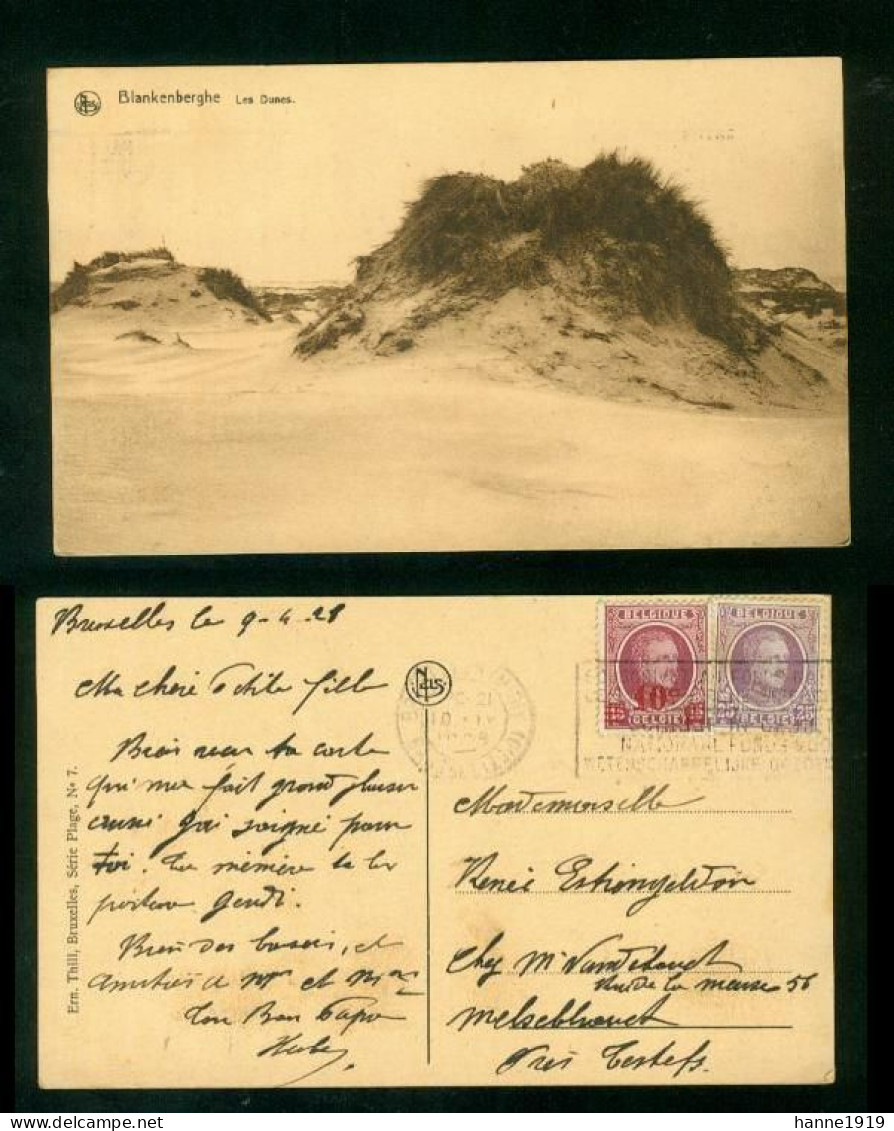 Blankenberghe Les Dunes.
Bruxelles le 9-4-28
Ma chère Petite fille
Bien reçu ta carte
qui me fait grand plaisir
aussi j'ai soigné pour
toi. Ta mémère te la
portera Jeudi.
Bien des baisers, et
amitiés à Mr et Mme
Ton Bon Papa
Ern. Thill, Bruxelles, Série Plage, No 7.
BELGIQUE
10c
BELGIË
BELGIQUE
25 BELGIË 25
21
NATIONAAL FONDS VOOR
WETENSCHAPPELIJKE
Mademoiselle
Renée
Chez Mr
Rue de la meuse 56
Près
hanne1919